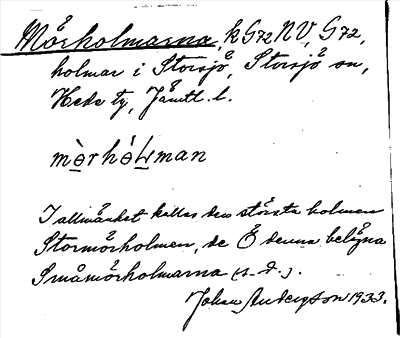 Mörholmarna, k G72NV, G72,
holmar i Storsjö, Storsjö sn,
Hede tg, Jämtl. l.
mèrhól̄man
I allmänhet kallas den största holmen
Stormörholmen, de Ö denna belägna
Småmörholmarna (s. d.).
Johan Anderson 1933.